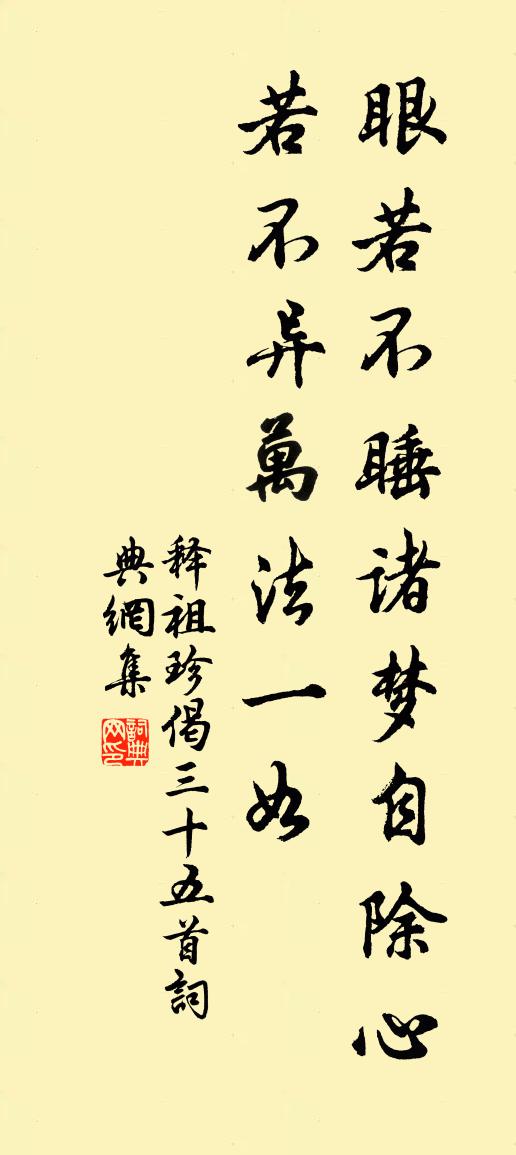 眼若不睡诸梦自除心
若不异萬法一如
释祖珍偈三十五首詞
典網集
詞典
网印